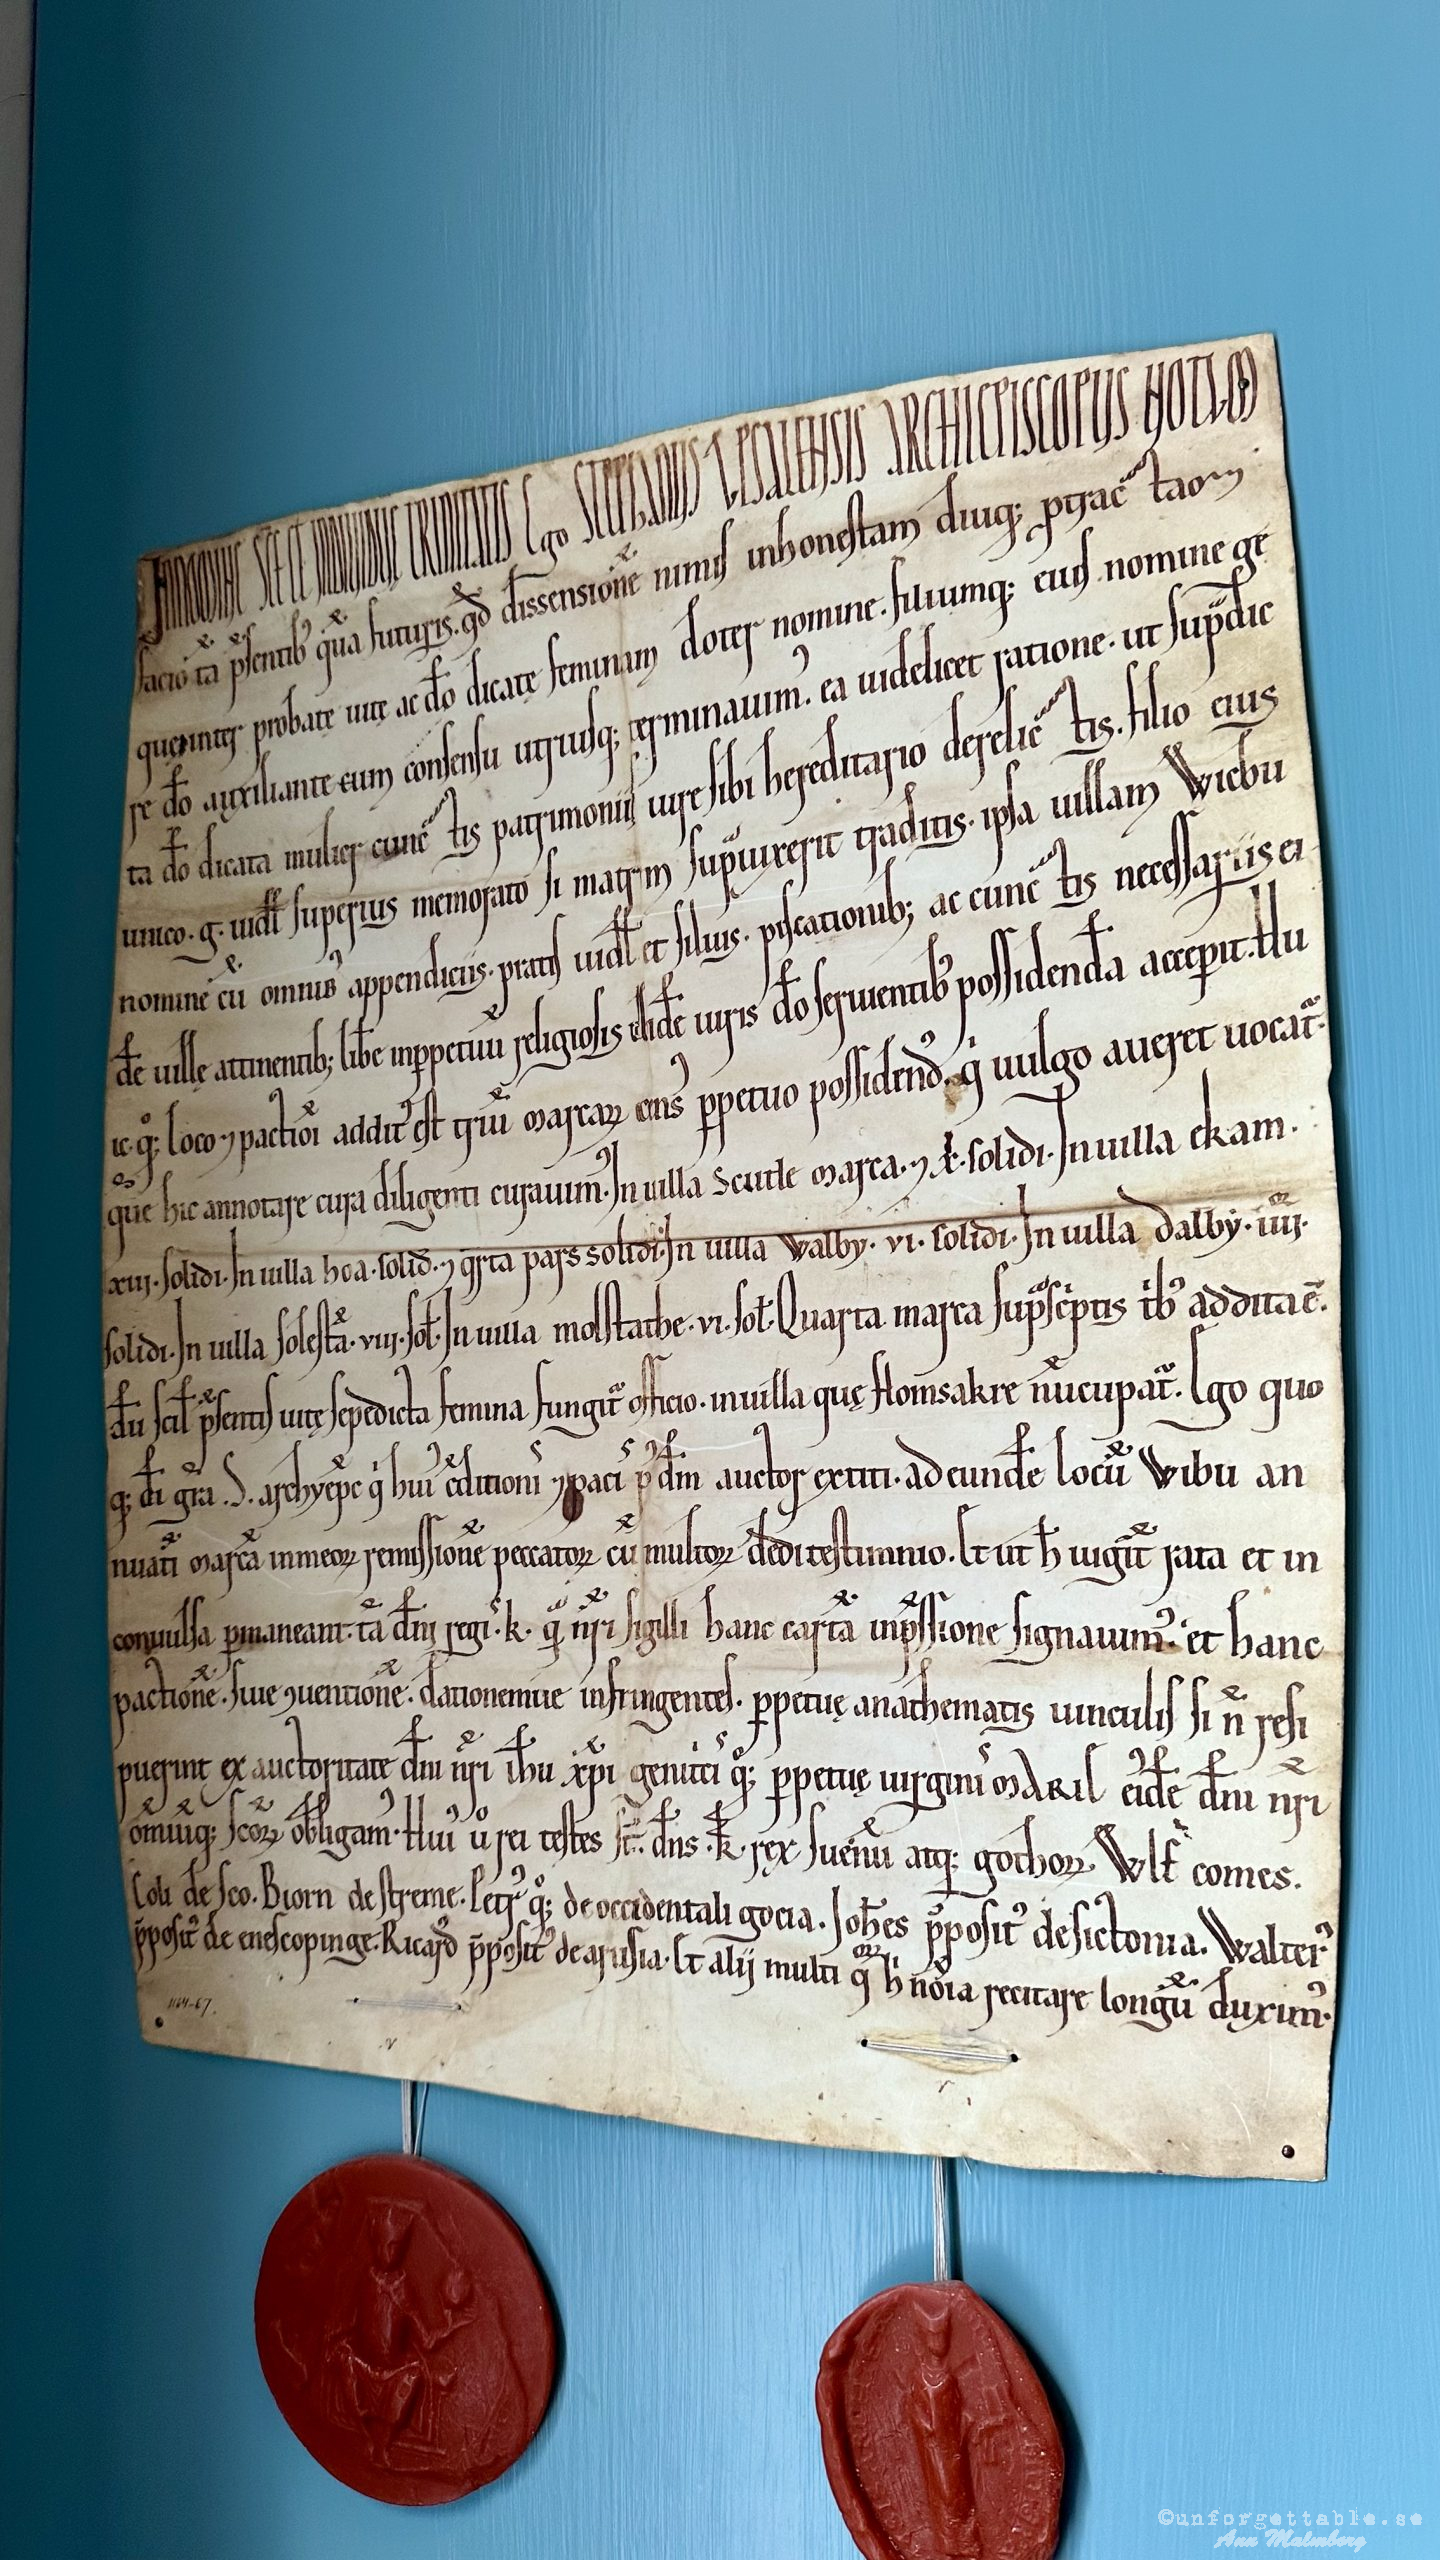 IN NOMINE SCE ET INDIVIDUE TRINITATIS Ego STEPHANUS UPSALENSIS ARCHIEPISCOPUS NOTUM
facio tā p̄sentib' quā futuris. qđ dissensionē nimis inhonestam diuq; ptractatam
que inter probatę uitę ac dō dicatę feminam doter nomine. filiumq; eius nomine ge
re dō auxiliante cum consensu utriusq; terminauim'. ea uidelicet ratione. ut sup̄dic
ta dō dicata mulier cunctis patrimonii iure sibi hereditario derelictis. filio eius
unico. g. uidł superius memorato si matrem sup̄uixerit traditis. ipsa uillam Wiebu
nomine cū omnib' appendiciis. pratis uidł et siluis. piscationib; ac cunctis necessariis ei
dē uillę attinentib; libe inppetuū religiosis ibidē iuris dō seruientib' possidendā accepit. Hu
ic. q°; loco ⁊ pactioi addit' est triū marcarꝝ cens' ppetuo possidend'. q' uulgo aueret uocat̄.
quē hic annotare cura diligenti curauim'. In uilla scutle marca. ⁊ x. solidi. In uilla ekam.
xiii. solidi. In uilla hea. solid. ⁊ q̄rta pars solidi. In uilla walby. vi. solidi. In uilla dalby. iiii.
solidi. In uilla solestā. viii. sol. In uilla molstathe. vi. sol. Quarta marca sup̄sc'ptis ib' addita ē.
dū scil p̄sentis uitę sepedicta femina fungit' officio. in uilla quę flomsakre nūcupat̄. Ego quo
q; di gra. S. archyepc q' hui' ⁊ditionis ⁊ paci' p dm auctor extiti. ad eundē locū Wibu an
nuati marcā in meorꝝ remissionē peccatorꝝ cū multorꝝ dedi testimnio. Et ut h iugit̄ rata et in
conuulsa pmaneant. tā dm regis. k. q̄ nri sigilli hanc cartā inp̄ssione signauim'. et hanc
pactionē. siue ⁊uentionē. dationemue infringentes. ppetuę anathematis uinculis si n̄ resi
puerint ex auctoritate dni nri ihu xpi genitcis q°; ppetuę uirginis MARIE eidē dni nri
omniūq; scorꝝ obligam'. Hui' u° rei testes st. dns. k. rex sueuū atq; gothorꝝ. Wlf comes.
Coli de sco. Biorn de streme. Petr' q°; de occidentali gocia. Johes p̄posit' de sictonia. Walter'
p̄posit' de enescopinge. Ricard' p̄posit' de arusia. Et alij multi quorꝝ h nōia recitare longū duxim'.
1164-67.
©unforgettable.se
Ann Malmberg